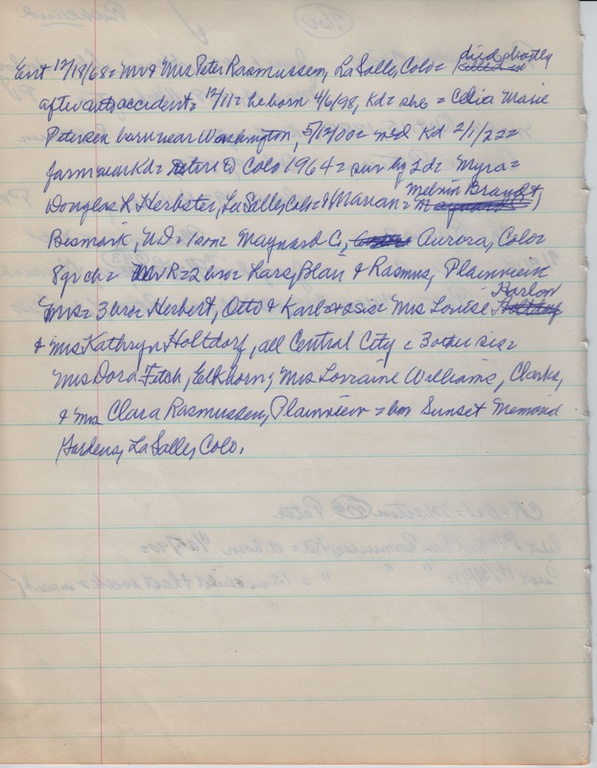 Ent 12/18/68= Mr & Mrs Peter Rasmussen, LaSalle, Colo= died shortly
after auto accident= 12/11= he born 4/6/98, Kd= she = Celia Marie
Petersen born near Washington, 5/12/00= med Kd 2/1/22=
farm near Kd= retired Colo 1964= sur by 2d= Myra=
Douglas L Herbster, LaSalle, Colo= & Marian= Melvin Brandt,
Bismark, ND= 1son= Maynard C, Aurora, Colo=
8grch= Mr R=2bro= Lars, Blair & Rasmus, Plainview
Mrs= 3bro= Herbert, Otto & Karl=2sis= Mrs Louise Harlow
& Mrs Kathryn Holtdorf, all Central City = 3other sis=
Mrs Dora Fitch, Elkhorn, Mrs Lorraine Williams, Clarks,
& Mrs Clara Rasmussen, Plainview = bur Sunset Memorial
Gardens, LaSalle, Colo.